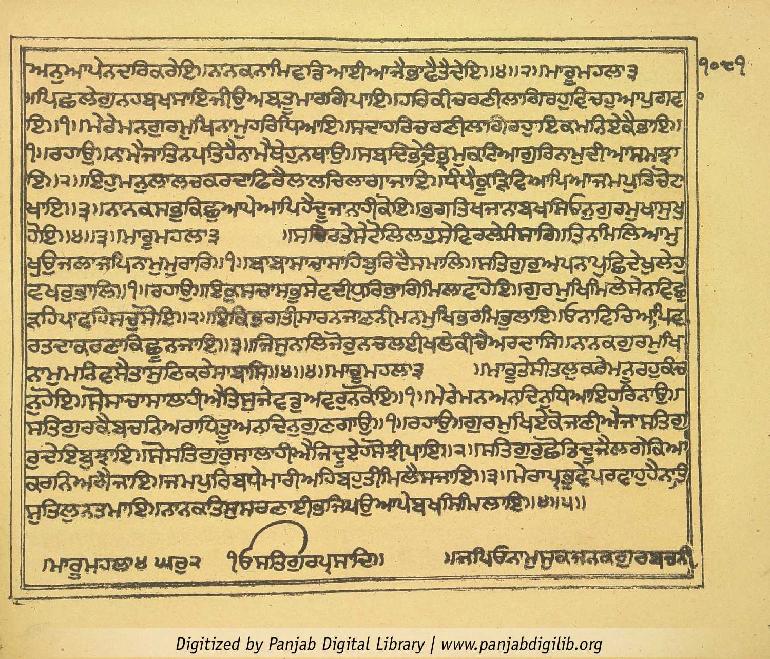 ਅਨੁਆਪੇਨਦਰਿਕਰੇਇ॥ਨਾਨਕਨਾਮਿਵਡਿਆਈਆਜੈਭਾਵੈਤੈਦੇਇ॥੪॥੨॥ਮਾਰੂਮਹਲਾ੩
੧੦੮੧
ਪਿਛਲੇਗੁਨਹਬਖਸਾਇਜੀਉਅਬਤੂਮਾਰਗਿਪਾਇ॥ਹਰਿਕੀਚਰਣੀਲਾਗਿਰਹਾਵਿਚਹੁਆਪੁਗਵ
ਇ॥੧॥ਮੇਰੇਮਨਗੁਰਮੁਖਿਨਾਮੁਹਰਿਧਿਆਇ॥ਸਦਾਹਰਿਚਰਣੀਲਾਗਿਰਹਾਇਕਮਨਿਏਕੈਭਾਇ॥
੧॥ਰਹਾਉ॥ਨਾਮੈਜਾਤਿਨਪਤਿਹੈਨਾਮੈਥੇਹੁਨਥਾਉ॥ਸਬਦਿਭੇਦਿਭ੍ਰਮੁਕਟਿਆਗੁਰਿਨਾਮੁਦੀਆਸਮਝਾ
ਇ॥੨॥ਇਹੁਮਨੁਲਾਲਚਕਰਦਾਫਿਰੈਲਾਲਚਿਲਾਗਾਜਾਇ॥ਧੰਧੈਕੂੜਿਵਿਆਪਿਆਜਮਪੁਰਿਚੋਟ
ਖਾਇ॥੩॥ਨਾਨਕਸਭੁਕਿਛੁਆਪੇਆਪਿਹੈਦੂਜਾਨਾਹੀਕੋਇ॥ਭਗਤਿਖਜਾਨਾਬਖਸਿਓਨੁਗੁਰਮੁਖਾਸੁਖੁ
ਹੋਇ॥੪॥੩॥ਮਾਰੂਮਹਲਾ੩ ॥ਸਚਿਰਤੇਸੇਟੋਲਿਲਹੁਸੇਵਿਰਲੇਸੰਸਾਰਿ॥ਤਿਨਮਿਲਿਆਮੁ
ਖੁਉਜਲਾਜਪਿਨਾਮੁਮੁਰਾਰਿ॥੧॥ਬਾਬਾਸਾਚਾਸਾਹਿਬੁਰਿਦੈਸਮਾਲਿ॥ਸਤਿਗੁਰੁਅਪਨਾਪੁਛਿਦੇਖੁਲੇਹੁ
ਵਖਰੁਭਾਲਿ॥੧॥ਰਹਾਉ॥ਇਕੁਸਚਾਸਭਸੇਵਦੀਧੁਰਿਭਾਗਿਮਿਲਾਵਾਹੋਇ॥ਗੁਰਮੁਖਿਮਿਲੇਸੇਨਵਿਛੁ
ੜਹਿਪਾਵਹਿਸਚੁਸੋਇ॥੨॥ਇਕਿਭਗਤੀਸਾਰਨਜਾਣਨੀਮਨਮੁਖਿਭਰਮਿਭੁਲਾਇ॥ਓਨਾਵਿਚਿਆਪਿਵ
ਰਤਦਾਕਰਣਾਕਿਛੂਨਜਾਇ॥੩॥ਜਿਸੁਨਾਲਿਜੋਰੁਨਚਲਈਖਲੇਕੀਚੈਅਰਦਾਸਿ॥ਨਾਨਕਗੁਰਮੁਖਿ
ਨਾਮੁਮਨਿਵਸੈਤਾਸੁਣਿਕਰੇਸਾਬਾਸਿ॥੪॥੪॥ਮਾਰੂਮਹਲਾ੩ ॥ਮਾਰੂਤੇਸੀਤਲੁਕਰੇਮਨੂਰਹੁਕੰਚ
ਨੁਹੋਇ॥ਸੋਸਾਚਾਸਾਲਾਹੀਐਤਿਸੁਜੇਵਡੁਅਵਰੁਨਕੋਇ॥੧॥ਮੇਰੇਮਨਅਨਦਿਨੁਧਿਆਇਹਰਿਨਾਉ॥
ਸਤਿਗੁਰਕੈਬਚਨਿਅਰਾਧਿਤੂਅਨਦਿਨੁਗੁਣਗਾਉ॥੧॥ਰਹਾਉ॥ਗੁਰਮੁਖਿਏਕੋਜਾਣੀਐਜਾਸਤਿਗੁ
ਰੁਦੇਇਬੁਝਾਇ॥ਸੋਸਤਿਗੁਰੁਸਾਲਾਹੀਐਜਿਦੂਏਹਸੋਝੀਪਾਇ॥੨॥ਸਤਿਗੁਰੁਛੋਡਿਦੂਜੈਲਗੇਕਿਆ
ਕਰਨਿਅਗੈਜਾਇ॥ਜਮਪੁਰਿਬਧੇਮਾਰੀਅਹਿਬਹੁਤੀਮਿਲੈਸਜਾਇ॥੩॥ਮੇਰਾਪ੍ਰਭੁਵੇਪਰਵਾਹੁਹੈਨਾਤਿ
ਸੁਤਿਲੁਨਤਮਾਇ॥ਨਾਨਕਤਿਸੁਸਰਣਾਈਭਜਿਪਉਆਪੇਬਖਸਿਮਿਲਾਇ॥੪॥੫॥
ਮਾਰੂਮਹਲਾ੪ ਘਰੁ੨ ੴਸਤਿਗੁਰਪ੍ਰਸਾਦਿ॥ ॥ਜਪਿਓਨਾਮੁਸੁਕਜਨਕਗੁਰਬਚਨੀ
Digitized by Panjab Digital Library | www.panjabdigilib.org